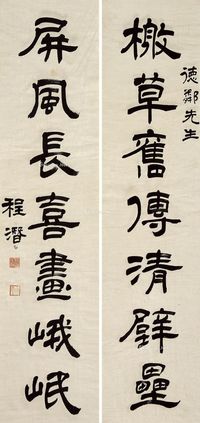 德鄰先生
檄草舊傳清壁壘
屏風長喜畫峨岷
程潛